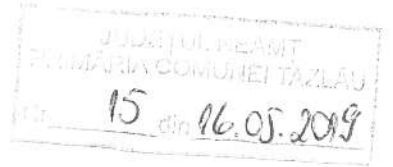 JUDEȚUL NEAMȚ
PRIMĂRIA COMUNEI TAZLĂU
Nr. 15 din 16.05.2019